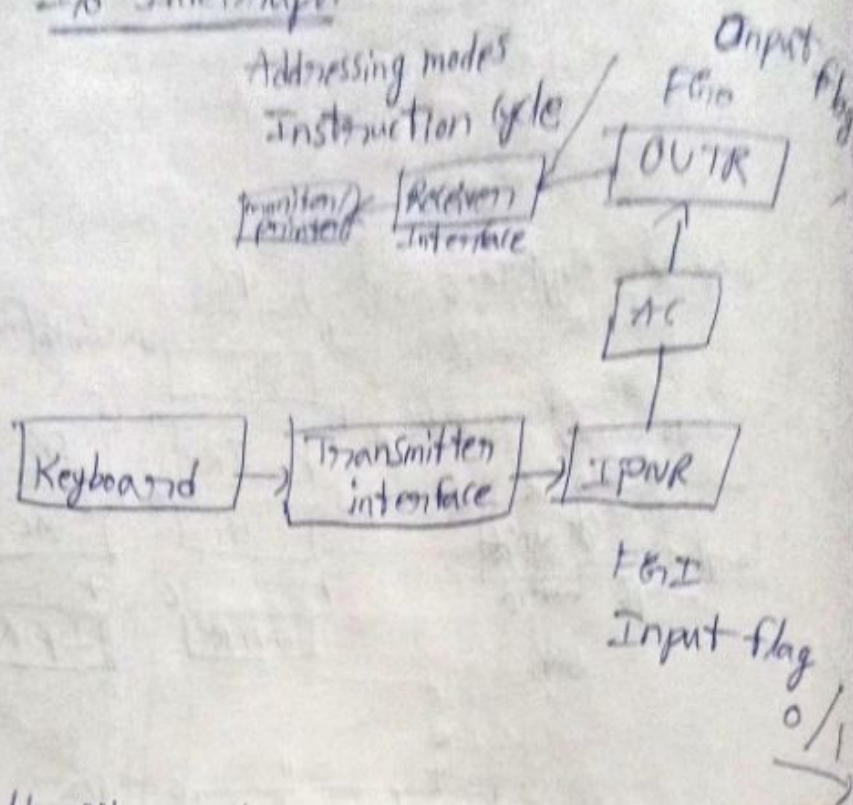 Addressing modes
Instruction Cycle
Onput flag
FGO
OUTR
Receiver
Interface
monitor/
printer
AC
Keyboard
Transmitter
interface
IPNR
FGI
Input flag
0/1